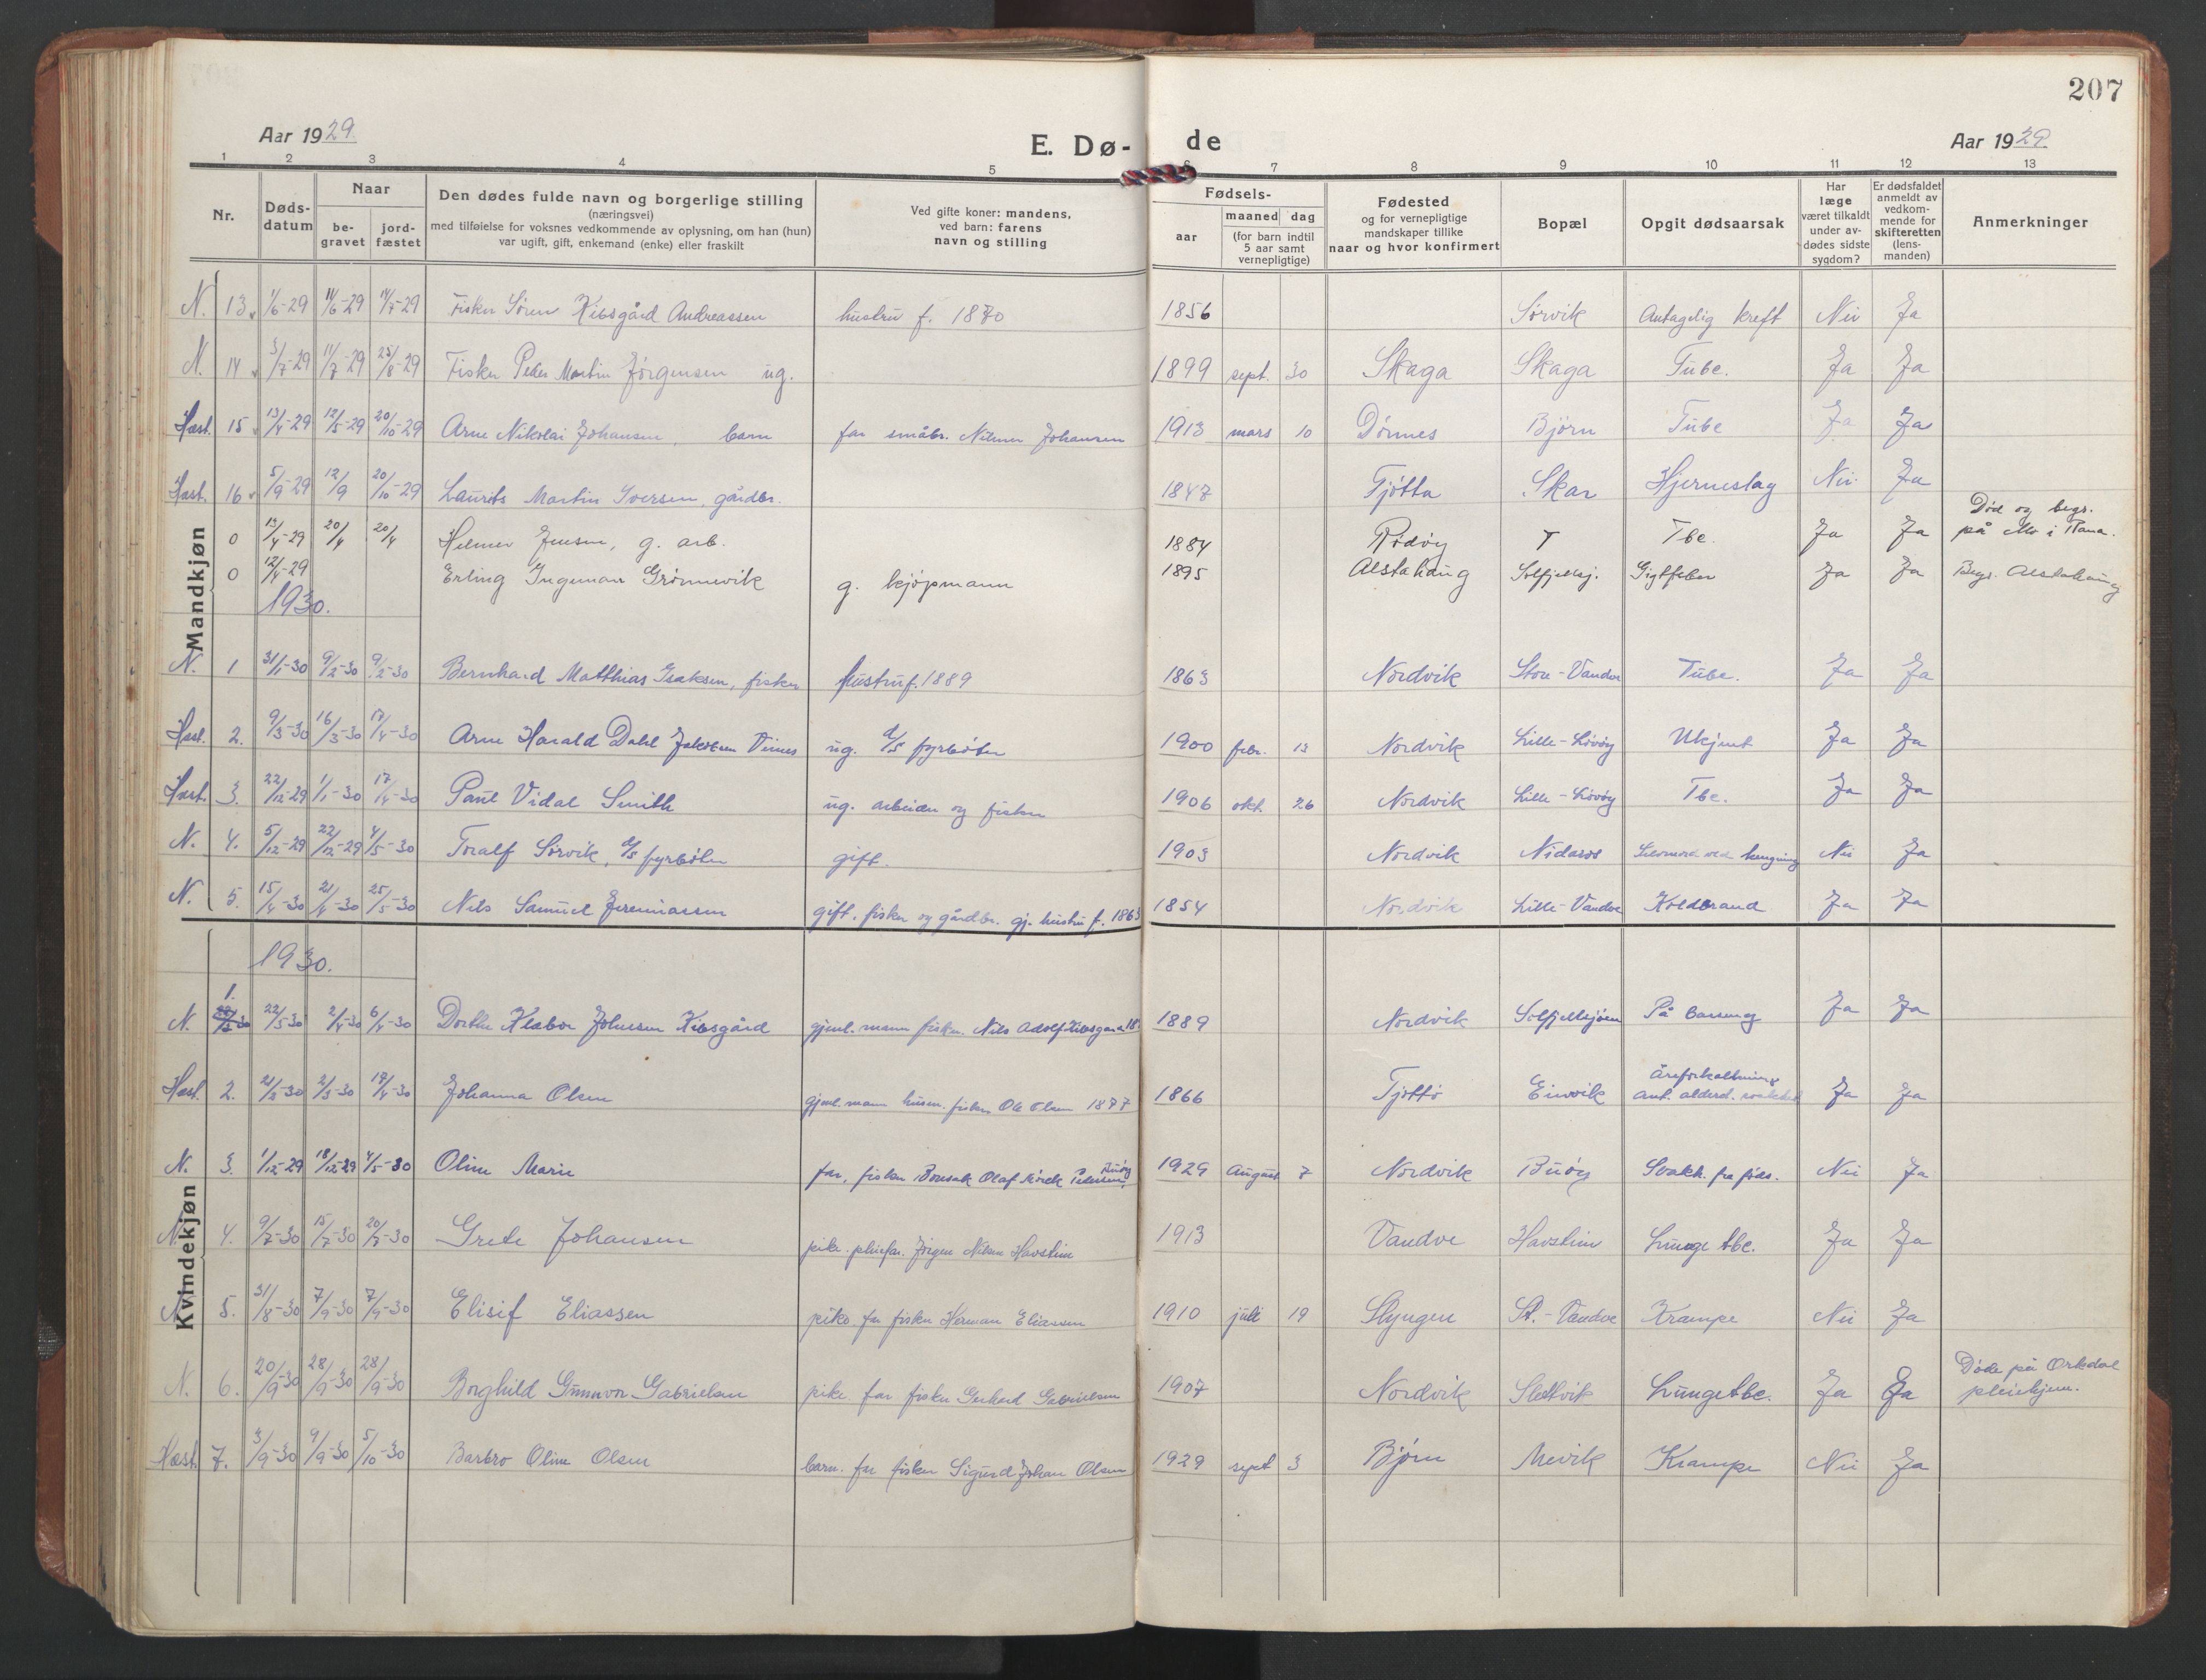 207
Aar 1929.
E. Dø-
de
Aar 1929.
1 2 3 4 5 6 7 8 9 10 11 12 13
Nr.
Døds-
datum
Naar
be-
gravet
jord-
fæstet
Den dødes fulde navn og borgerlige stilling
(næringsvei)
med tilføielse for voksnes vedkommende av oplysning, om han (hun)
var ugift, gift, enkemand (enke) eller fraskilt
Ved gifte koner: mandens,
ved barn: farens
navn og stilling
Fødsels-
aar
maaned
dag
(for barn indtil
5 aar samt
vernepligtige)
Fødested
og for vernepligtige
mandskaper tillike
naar og hvor konfirmert
Bopæl
Opgit dødsaarsak
Har
læge
været tilkaldt
under av-
dødes sidste
sygdom?
Er dødsfaldet
anmeldt av
vedkom-
mende for
skifteretten
(lens-
manden)
Anmerkninger
Mandkjøn
N. 13 1/6-29 11/6-29 14/7-29 Fisker Søren Kibsgård Andreassen hustru f. 1870 1856 Sørvik Antagelig kreft Nei Ja
N. 14 3/7-29 11/7-29 25/8-29 Fisker Peder Martin Jørgensen ug. 1899 sept. 30 Skaga Skaga Tube. Ja Ja
Hæst. 15 13/4-29 12/5-29 20/10-29 Arne Nikolai Johansen, barn far småbr. Johansen 1913 mars 10 Dønnes Bjørn Tube Ja Ja
Hæst. 16 5/9-29 12/9 20/10-29 Laurits Martin Iversen, gårdbr. 1847 Tjøtta Skar Hjerneslag Nei Ja
0 13/4-29 20/4 20/4 Helmer Jensen, g. arb. 1884 Rødøy T Tbe. Ja Ja Død og begr.
på Mo i Rana.
0 12/4-29 Erling Ingeman Grønnevik g. kjøpmann 1895 Alstahaug Solfjellsj. Gigtfeber Ja Ja Begr. Alstahaug
1930.
N. 1 31/1-30 9/2-30 9/2-30 Bernhard Matthias Isaksen, fisker hustru f. 1889 1863 Nordvik Store-Vandve Tube. Ja Ja
Hæst. 2. 9/3-30 16/3-30 17/4-30 Arne Harald Dahl Jakobsen ug. fyrbøter 1900 febr. 13 Nordvik Lille-Løvøy Ukjent Ja Ja
Hæst. 3. 22/12-29 1/1-30 17/4-30 Paul Vidal Smith ug. arbeider og fisker 1906 okt. 26 Nordvik Lille-Løvøy Tbc. Ja Ja
N. 4. 5/12-29 22/12-29 4/5-30 Toralf Sørvik, fyrbøter gift. 1903 Nordvik Nidaros Selvmord ved hengning Nei Ja
N. 5. 15/4-30 21/4-30 25/5-30 Nils Samuel Jeremiassen gift. fisker og gårdbr. gj. hustru f. 1863 1854 Nordvik Lille-Vandve Koldbrand Ja Ja
Kvindekjøn
1930.
N. 1. 22/3-30 2/4-30 6/4-30 Dorthe Johnsen Kibsgård gjenl. mann fisker. Nils Adolf Kibsgård 1889 Nordvik Solfjellsjøen På barseng Ja Ja
Hæst. 2. 21/2-30 2/3-30 17/4-30 Johanna Olsen gjenl. mann husm. fisker Ole Olsen 1877 1866 Tjøttø Einvik Åreforkalkning
ant. alderd. svakhet Ja Ja
N. 3. 1/12-29 18/12-29 4/5-30 Oline Marie far, fisker Olaf Pedersen, Buøy 1929 August 7 Nordvik Buøy Svakh. fra føds. Nei Ja
N. 4. 9/7-30 15/7-30 20/7-30 Grete Johansen pike. pleiefar. Jørgen Nilsen Havstein 1913 Vandve Havstein Lunge tbc. Ja Ja
N. 5. 31/8-30 7/9-30 7/9-30 Elisif Eliassen pike far fisker Herman Eliassen 1910 juli 19 Slyngen St.-Vandve Krampe Nei Ja
N. 6. 20/9-30 28/9-30 28/9-30 Borghild Gunnvor Gabrielsen pike far fisker Gerhard Gabrielsen 1907 Nordvik Slettvik Lungetbc. Ja Ja Døde på Orkdal
pleiehjem.
Hæst. 7. 3/9-30 9/9-30 5/10-30 Barbro Oline Olsen barn. far fisker Sigurd Johan Olsen 1929 sept 3 Bjørn Mevik Krampe Nei Ja